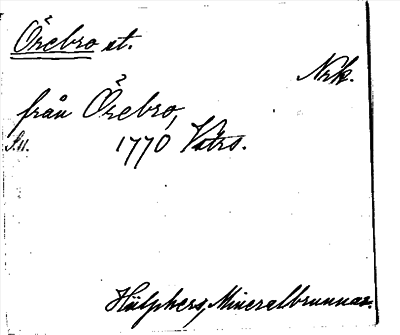 Örebro st.
Nrk.
från Örebro,
S.u. 1770 Vstrs.
Hülphers, Mineralbrunnar.